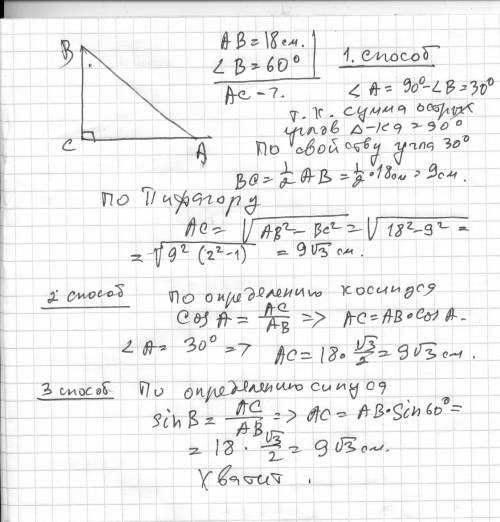 B
C
A
AB = 18 см.
∠B = 60°
AC - ?
1. способ
∠A = 90° - ∠B = 30°
т.к. сумма острых
углов Δ-ка = 90°
По свойству угла 30°
BC = 1/2 AB = 1/2 · 18 см = 9 см.
По Пифагору
AC = √(AB² - BC²) = √(18² - 9²) =
= √(9² (2² - 1)) = 9√3 см.
2 способ По определению косинуса
cos A = AC/AB => AC = AB · cos A.
∠A = 30° => AC = 18 · √3/2 = 9√3 см.
3 способ По определению синуса
sin B = AC/AB => AC = AB · Sin 60° =
= 18 · √3/2 = 9√3 см.
Хватит.